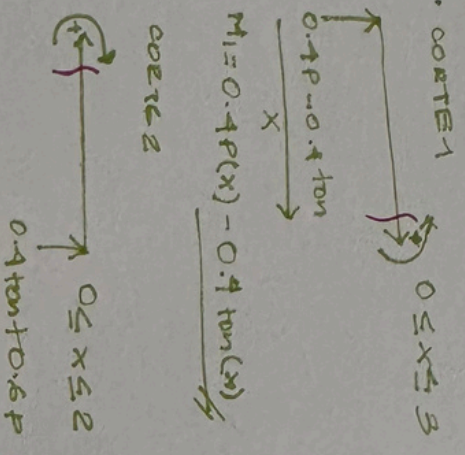 · CORTE 1
0 ≤ x ≤ 3
0.4P-0.4 ton
x
M1 = 0.4P(x) - 0.4 ton(x)
CORTE 2
+
0 ≤ x ≤ 2
0.4 ton+0.6P